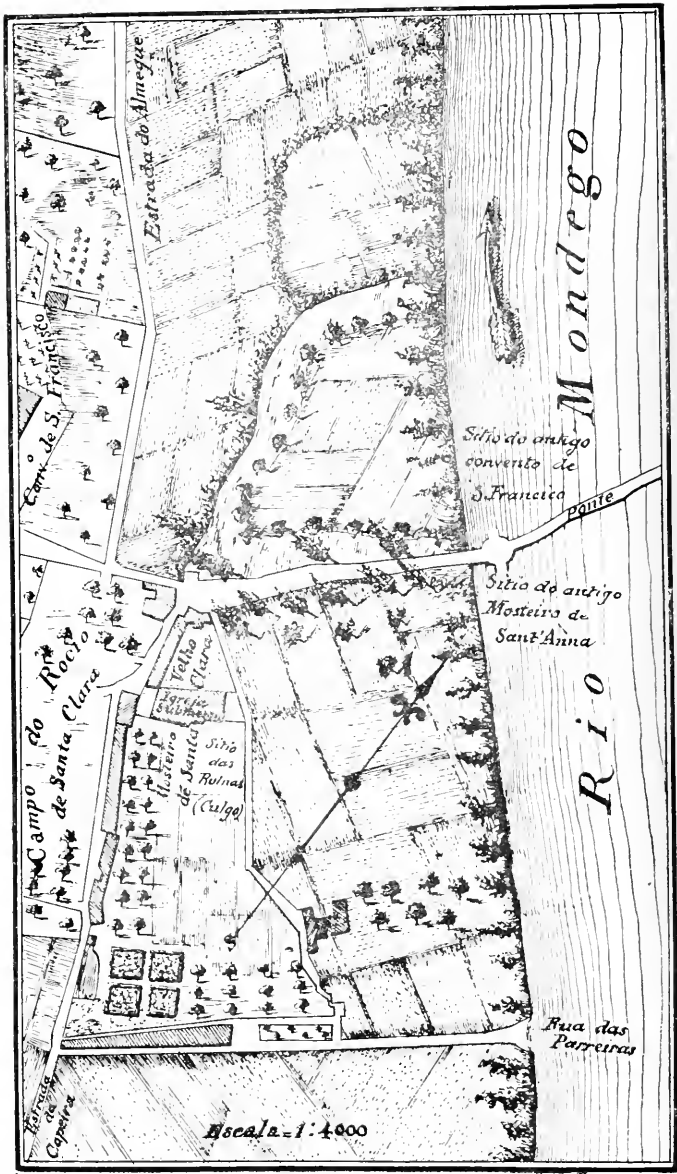 Estrada do Almegue
Conv.º de S. Francisco
Rio Mondego
Sitio do antigo
convento de
S. Francico
Ponte
Sitio do antigo
Mosteiro de
Sant'Anna
Campo do Rocio
de Santa Clara
Mosteiro Velho
de Santa Clara
Igreja
Sitio
das
Ruinas
(Culgo)
Rua das
Parreiras
Estrada
da
Capeira
Escala=1:4000